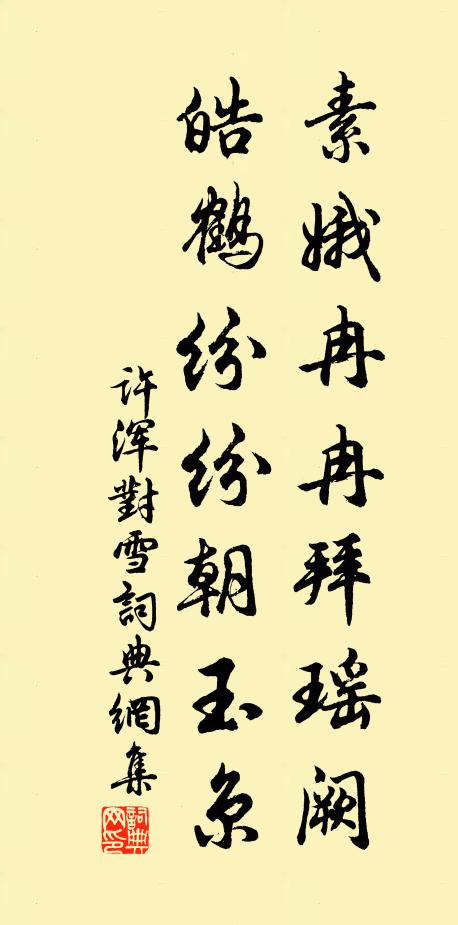 素娥冉冉拜瑶阙
皓鹤纷纷朝玉京
许浑對雪詞典網集
詞典网印